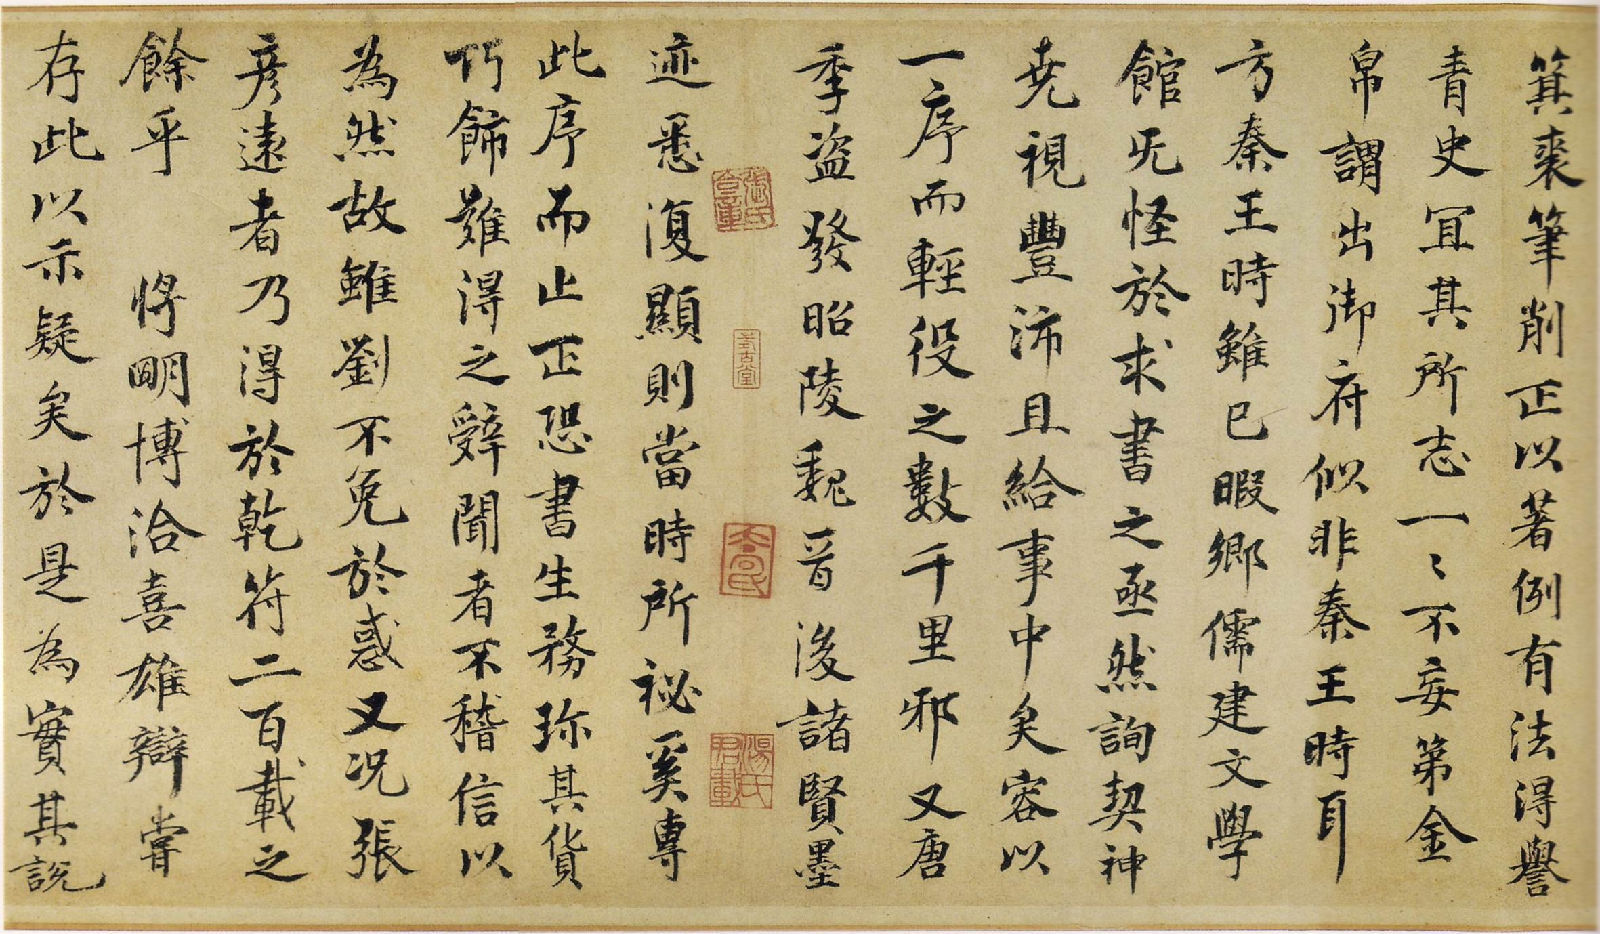 箕裘筆削正以著例有法得譽
青史冝其所志一〻不妄第金
帛謂出御府似非秦王時耳
方秦王時雖已暇鄉儒建文學
館旡怪於求書之亟然詢契神
尭視豐沛且給事中矣容以
一序而輕役之數千里邪又唐
季盜發昭陵魏晉後諸賢墨
迹悉復顯則當時所祕奚專
此序而止正恐書生務珎其貨
巧飾難得之辭聞者不稽信以
為然故雖劉不免於惑又况張
彥遠者乃得於乾符二百載之
餘乎 將明博洽喜雄辯嘗
存此以示疑矣於是為實其說